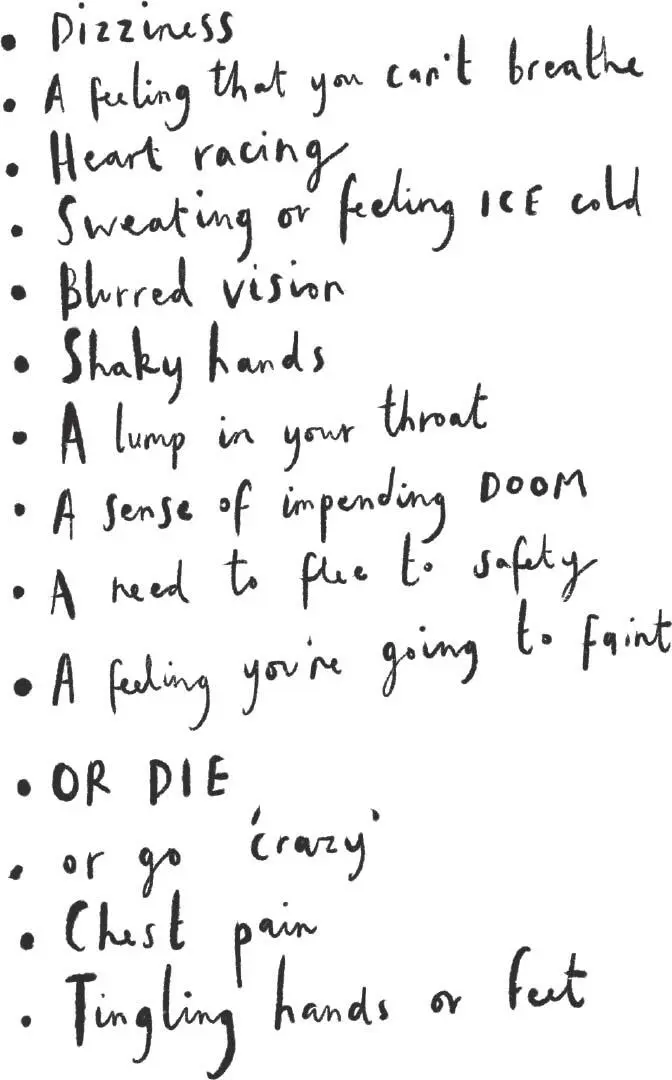 • Dizziness
• A feeling that you can't breathe
• Heart racing
• Sweating or feeling ICE cold
• Blurred vision
• Shaky hands
• A lump in your throat
• A sense of impending DOOM
• A need to flee to safety
• A feeling you're going to faint
• OR DIE
• or go 'crazy'
• Chest pain
• Tingling hands or feet